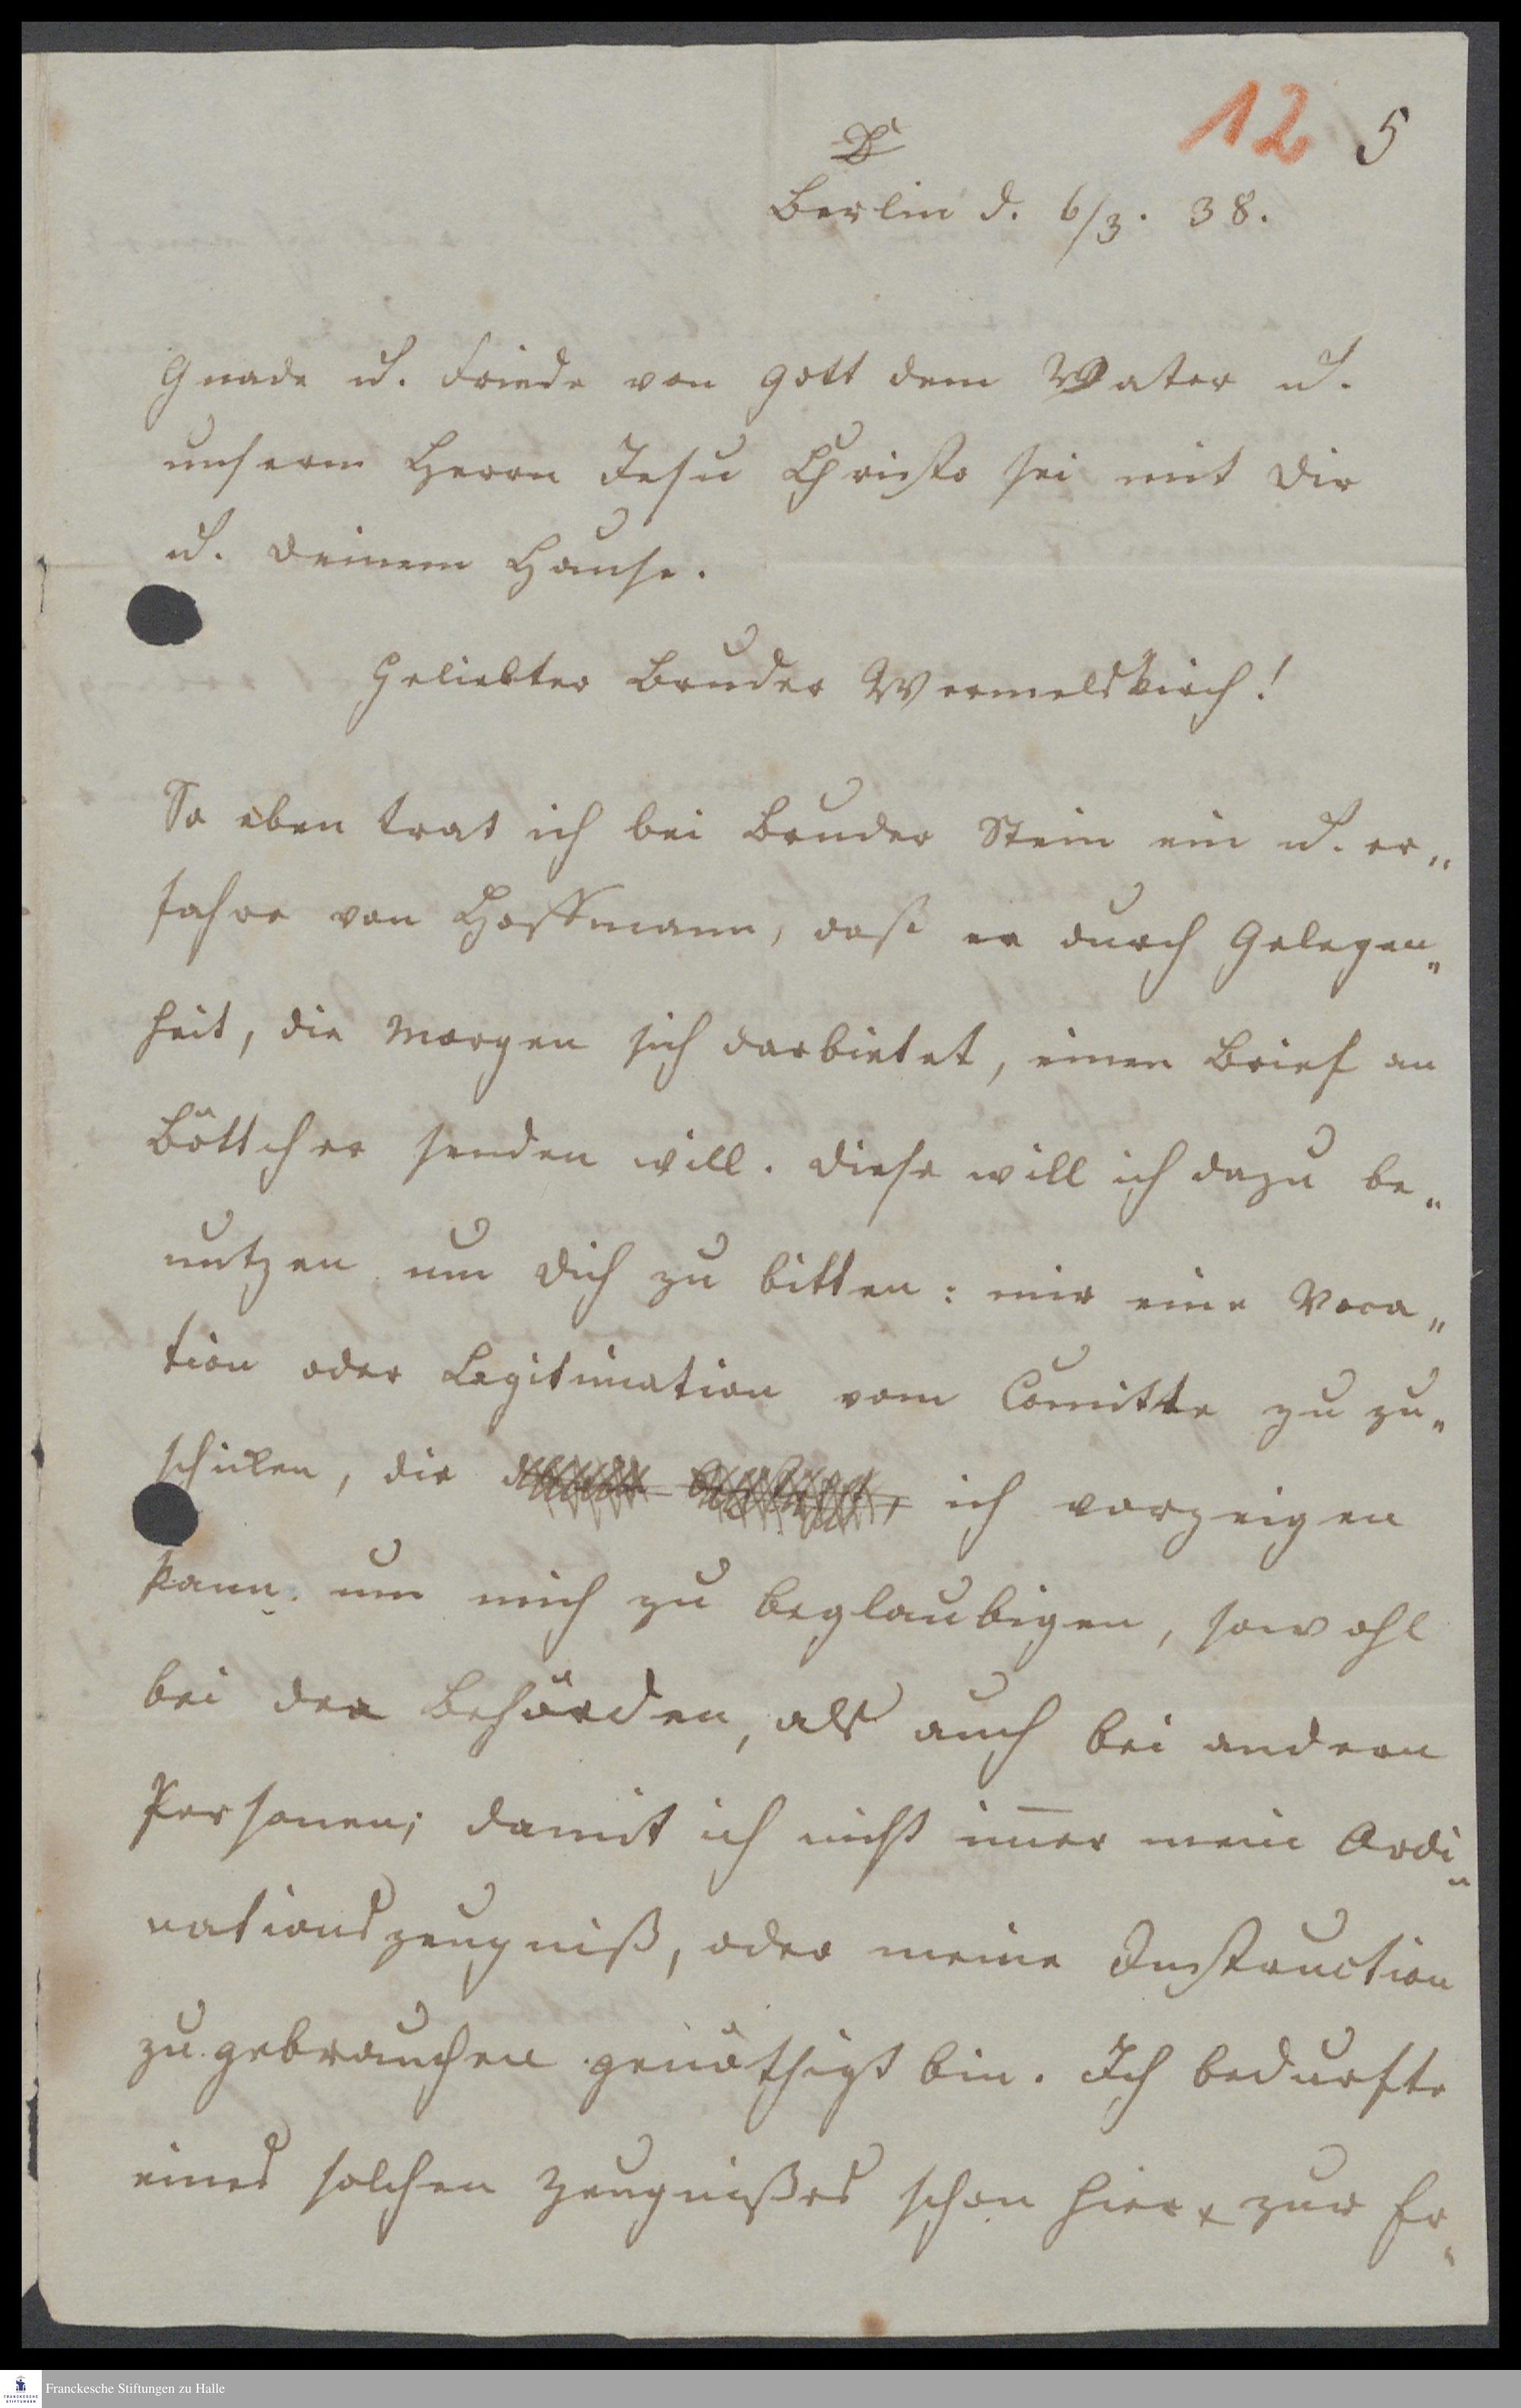 12 5
Berlin d. 6/3. 38.
Gnade u. Friede von Gott dem Vater u.
unserm Herrn Jesu Christo sei mit Dir
u. Deinem Hause.
Geliebter Bruder Wermelskirch!
So eben trat ich bei Bruder Stein ein u. er„
fahre von Hoffmann, daß er durch Gelegen„
heit, die Morgen sich darbietet, einen Brief an
Böttcher senden will. Diese will ich dazu be„
nutzen um Dich zu bitten: mir eine Voca„
tion oder Legitimation vom Comitte zu zu„
schicken, die ich vorzeigen
kann. um mich zu beglaubigen, sowohl
bei den Behörden, als auch bei andern
Personen; damit ich nicht im̄er mein Ordi„
nationszeugniß, oder meine Instruction
zu gebrauchen genöthigt bin. Ich bedurfte
eines solchen Zeugnißes schon hier zur Er„
Franckesche Stiftungen zu Halle
FRANCKESCHE
STIFTUNGEN